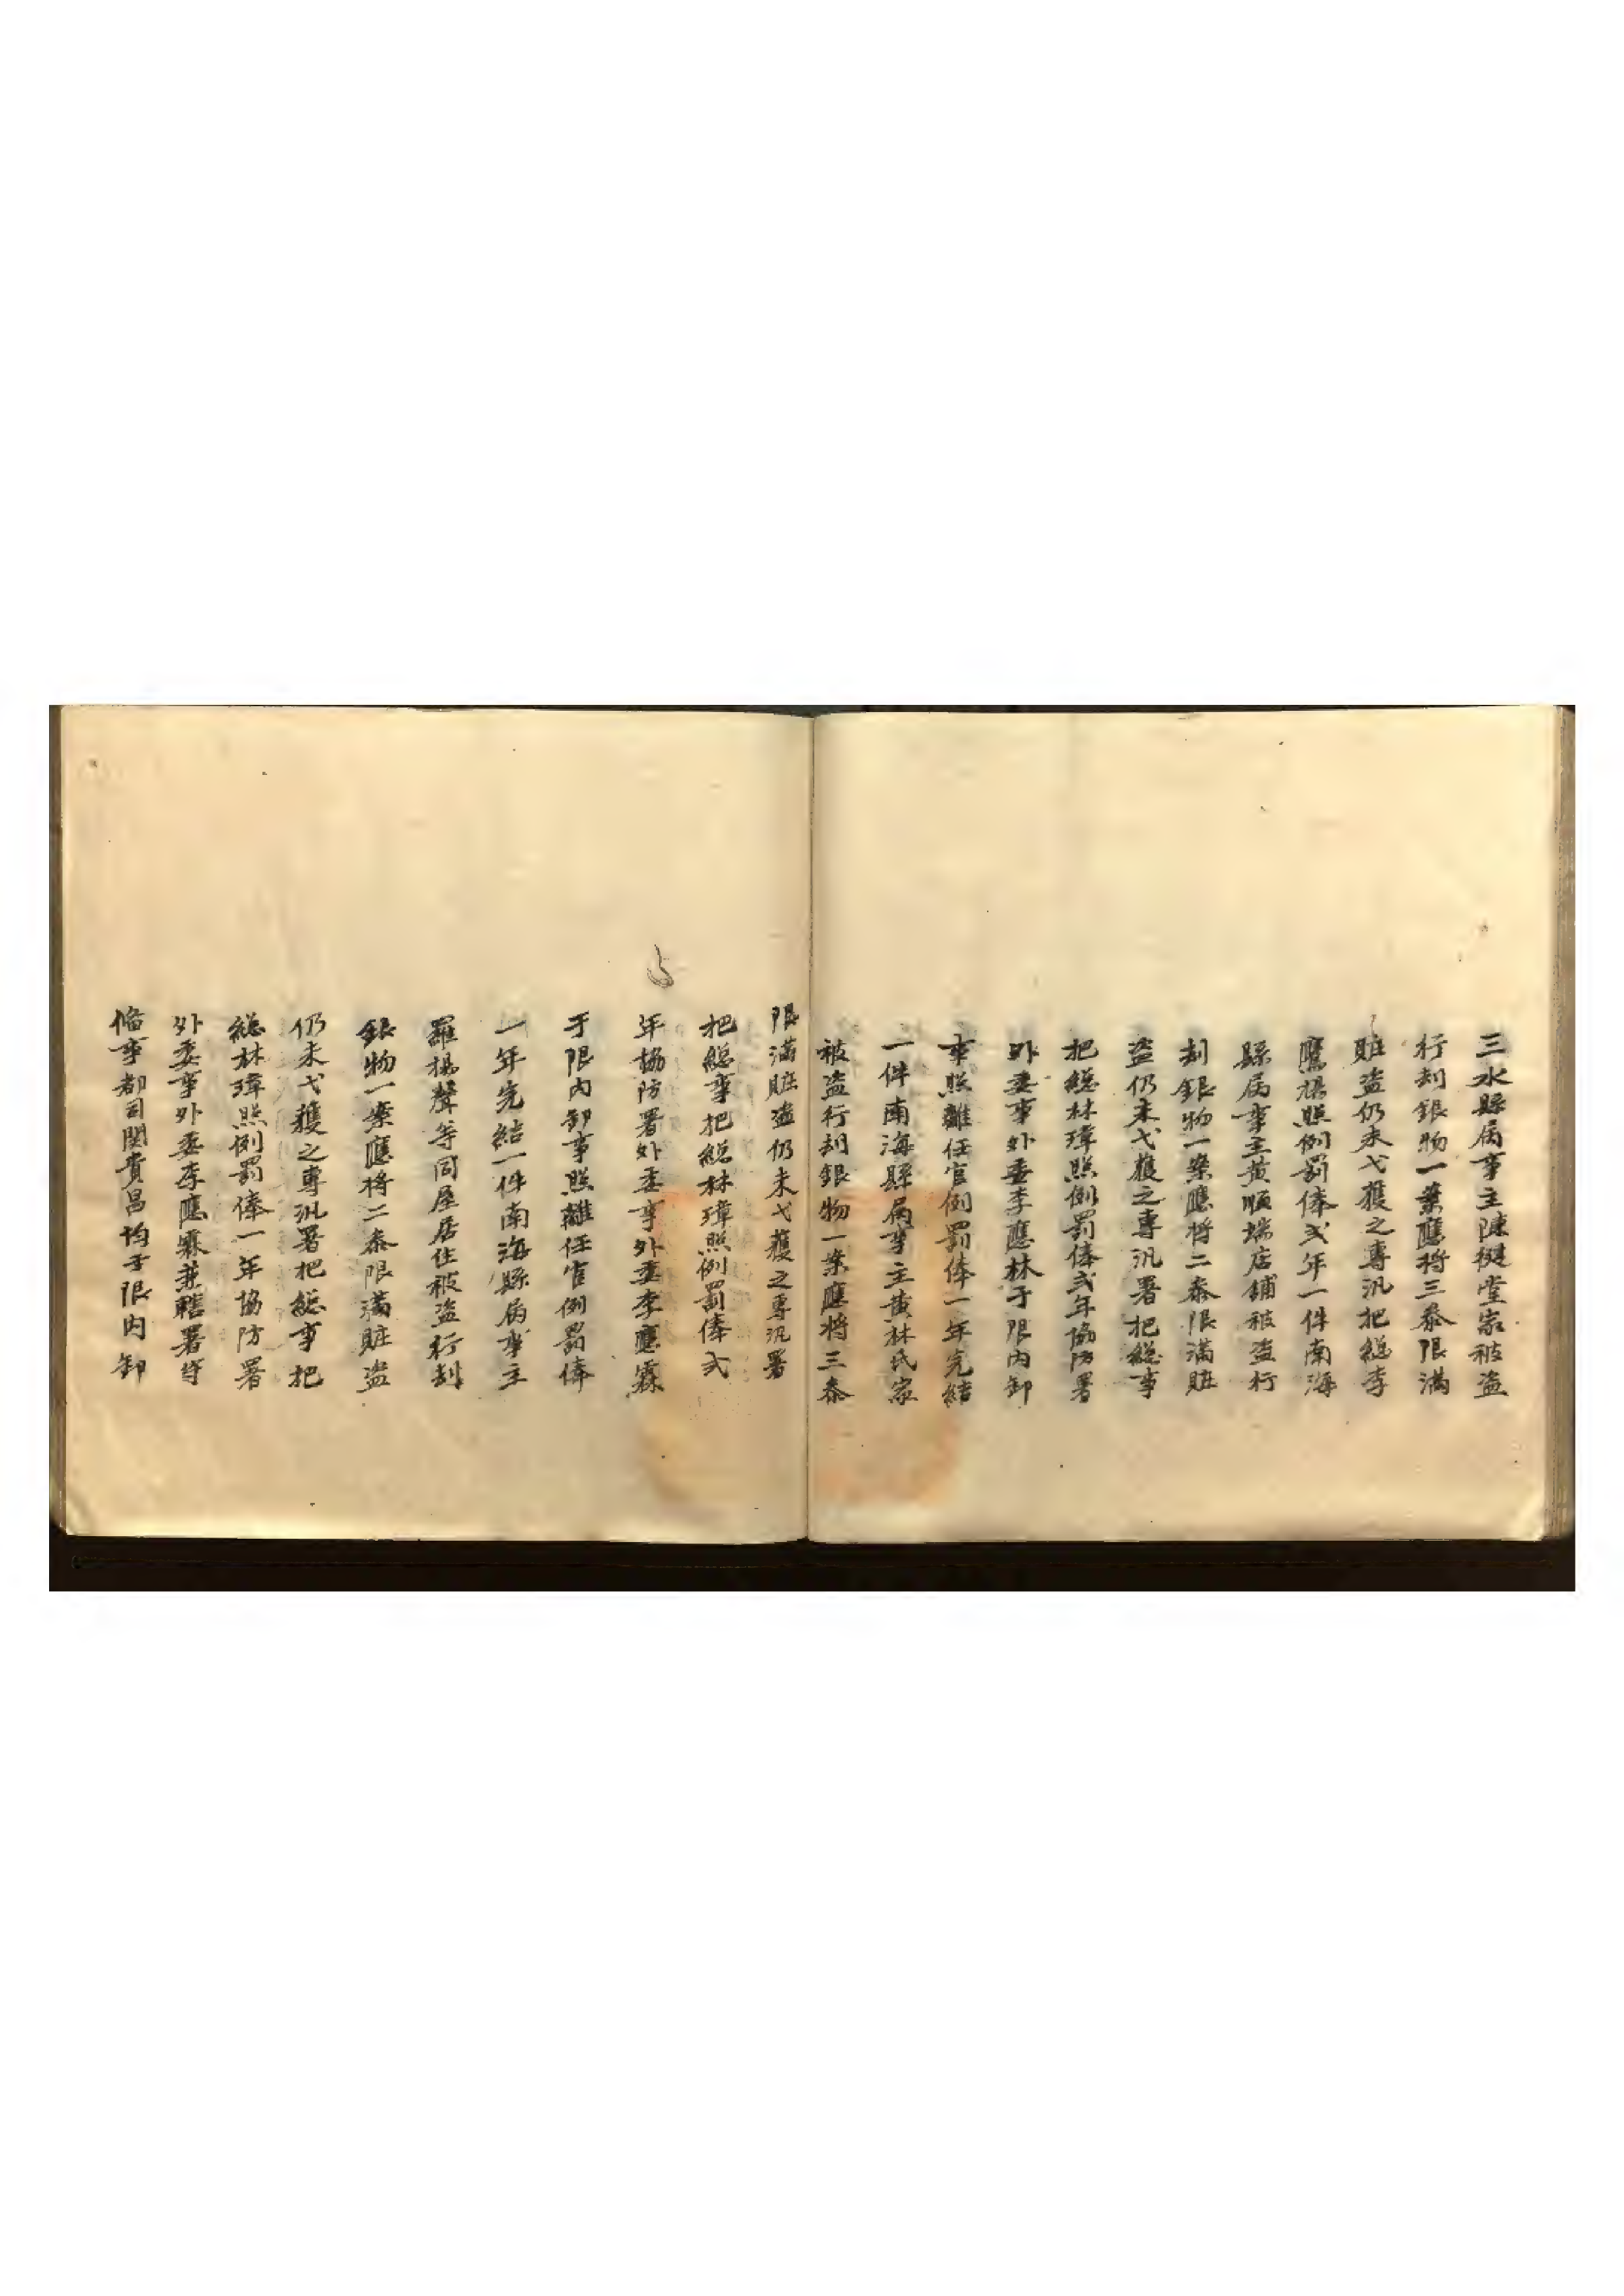 三水縣屬事主陳挺堂家被盜
行刼銀物一案應將三叅限滿
賍盗仍未弋獲之專汛把總李
鷹揚照例罰俸弍年一件南海
縣屬事主黄順端店鋪被盜行
刼銀物一案應將二叅限滿賍
盗仍未弋獲之專汛署把總事
把總林瑋照例罰俸弍年協防署
外委事外委李應林于限内卸
事照離任官例罰俸一年完結
一件南海縣屬事主黄林氏家
被盗行刼銀物一案應將三叅
限滿賍盗仍未弋獲之專汛署
把總事把總林瑋照例罰俸弍
年協防署外委事外委李應霖
于限内卸事照離任官例罰俸
一年完結一件南海縣屬事主
羅楊聲等同屋居住被盗行刼
銀物一案應將二叅限滿賍盗
仍未弋獲之專汛署把總事把
總林瑋照例罰俸一年協防署
外委事外委李應霖兼轄署守
偹事都司関貴昌均于限内卸